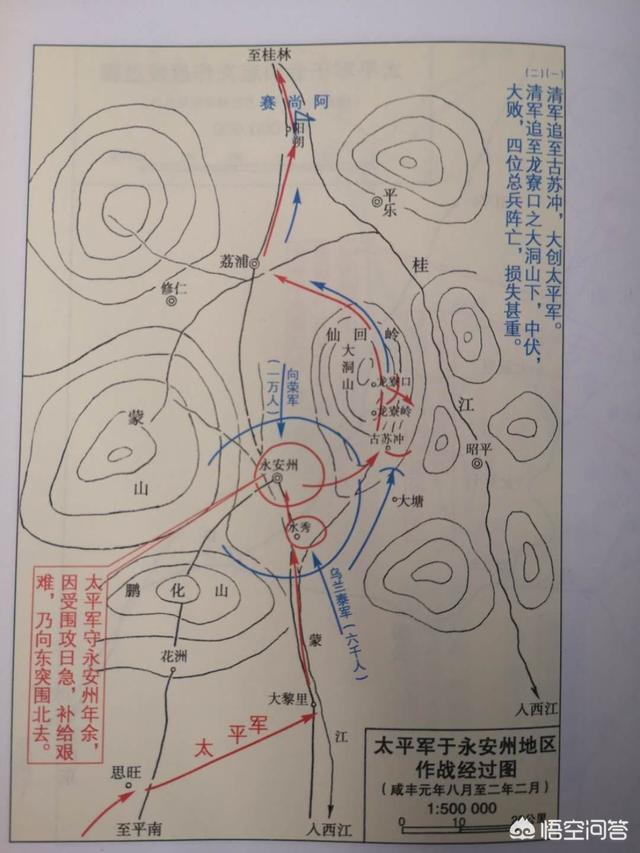 至桂林
赛尚阿
阳朔
(一)清军追至古苏冲，大创太平军。
(二)清军追至龙寮口之大洞山下，中伏，
大败，四位总兵阵亡，损失甚重。
平乐
荔浦
修仁
桂江
仙回岭
大洞山
龙寮口
龙寮岭
古苏冲
向荣军
(一万人)
蒙山
永安州
昭平
大塘
水秀
乌兰泰军(六千人)
鹏化山
花洲
蒙江
大黎里
太平军守永安州年余，
因受围攻日急，补给艰
难，乃向东突围北去。
太平军
思旺
至平南
入西江
入西江
太平军于永安州地区
作战经过图
(咸丰元年八月至二年二月)
1:500 000
0 10 20公里
悟空问答